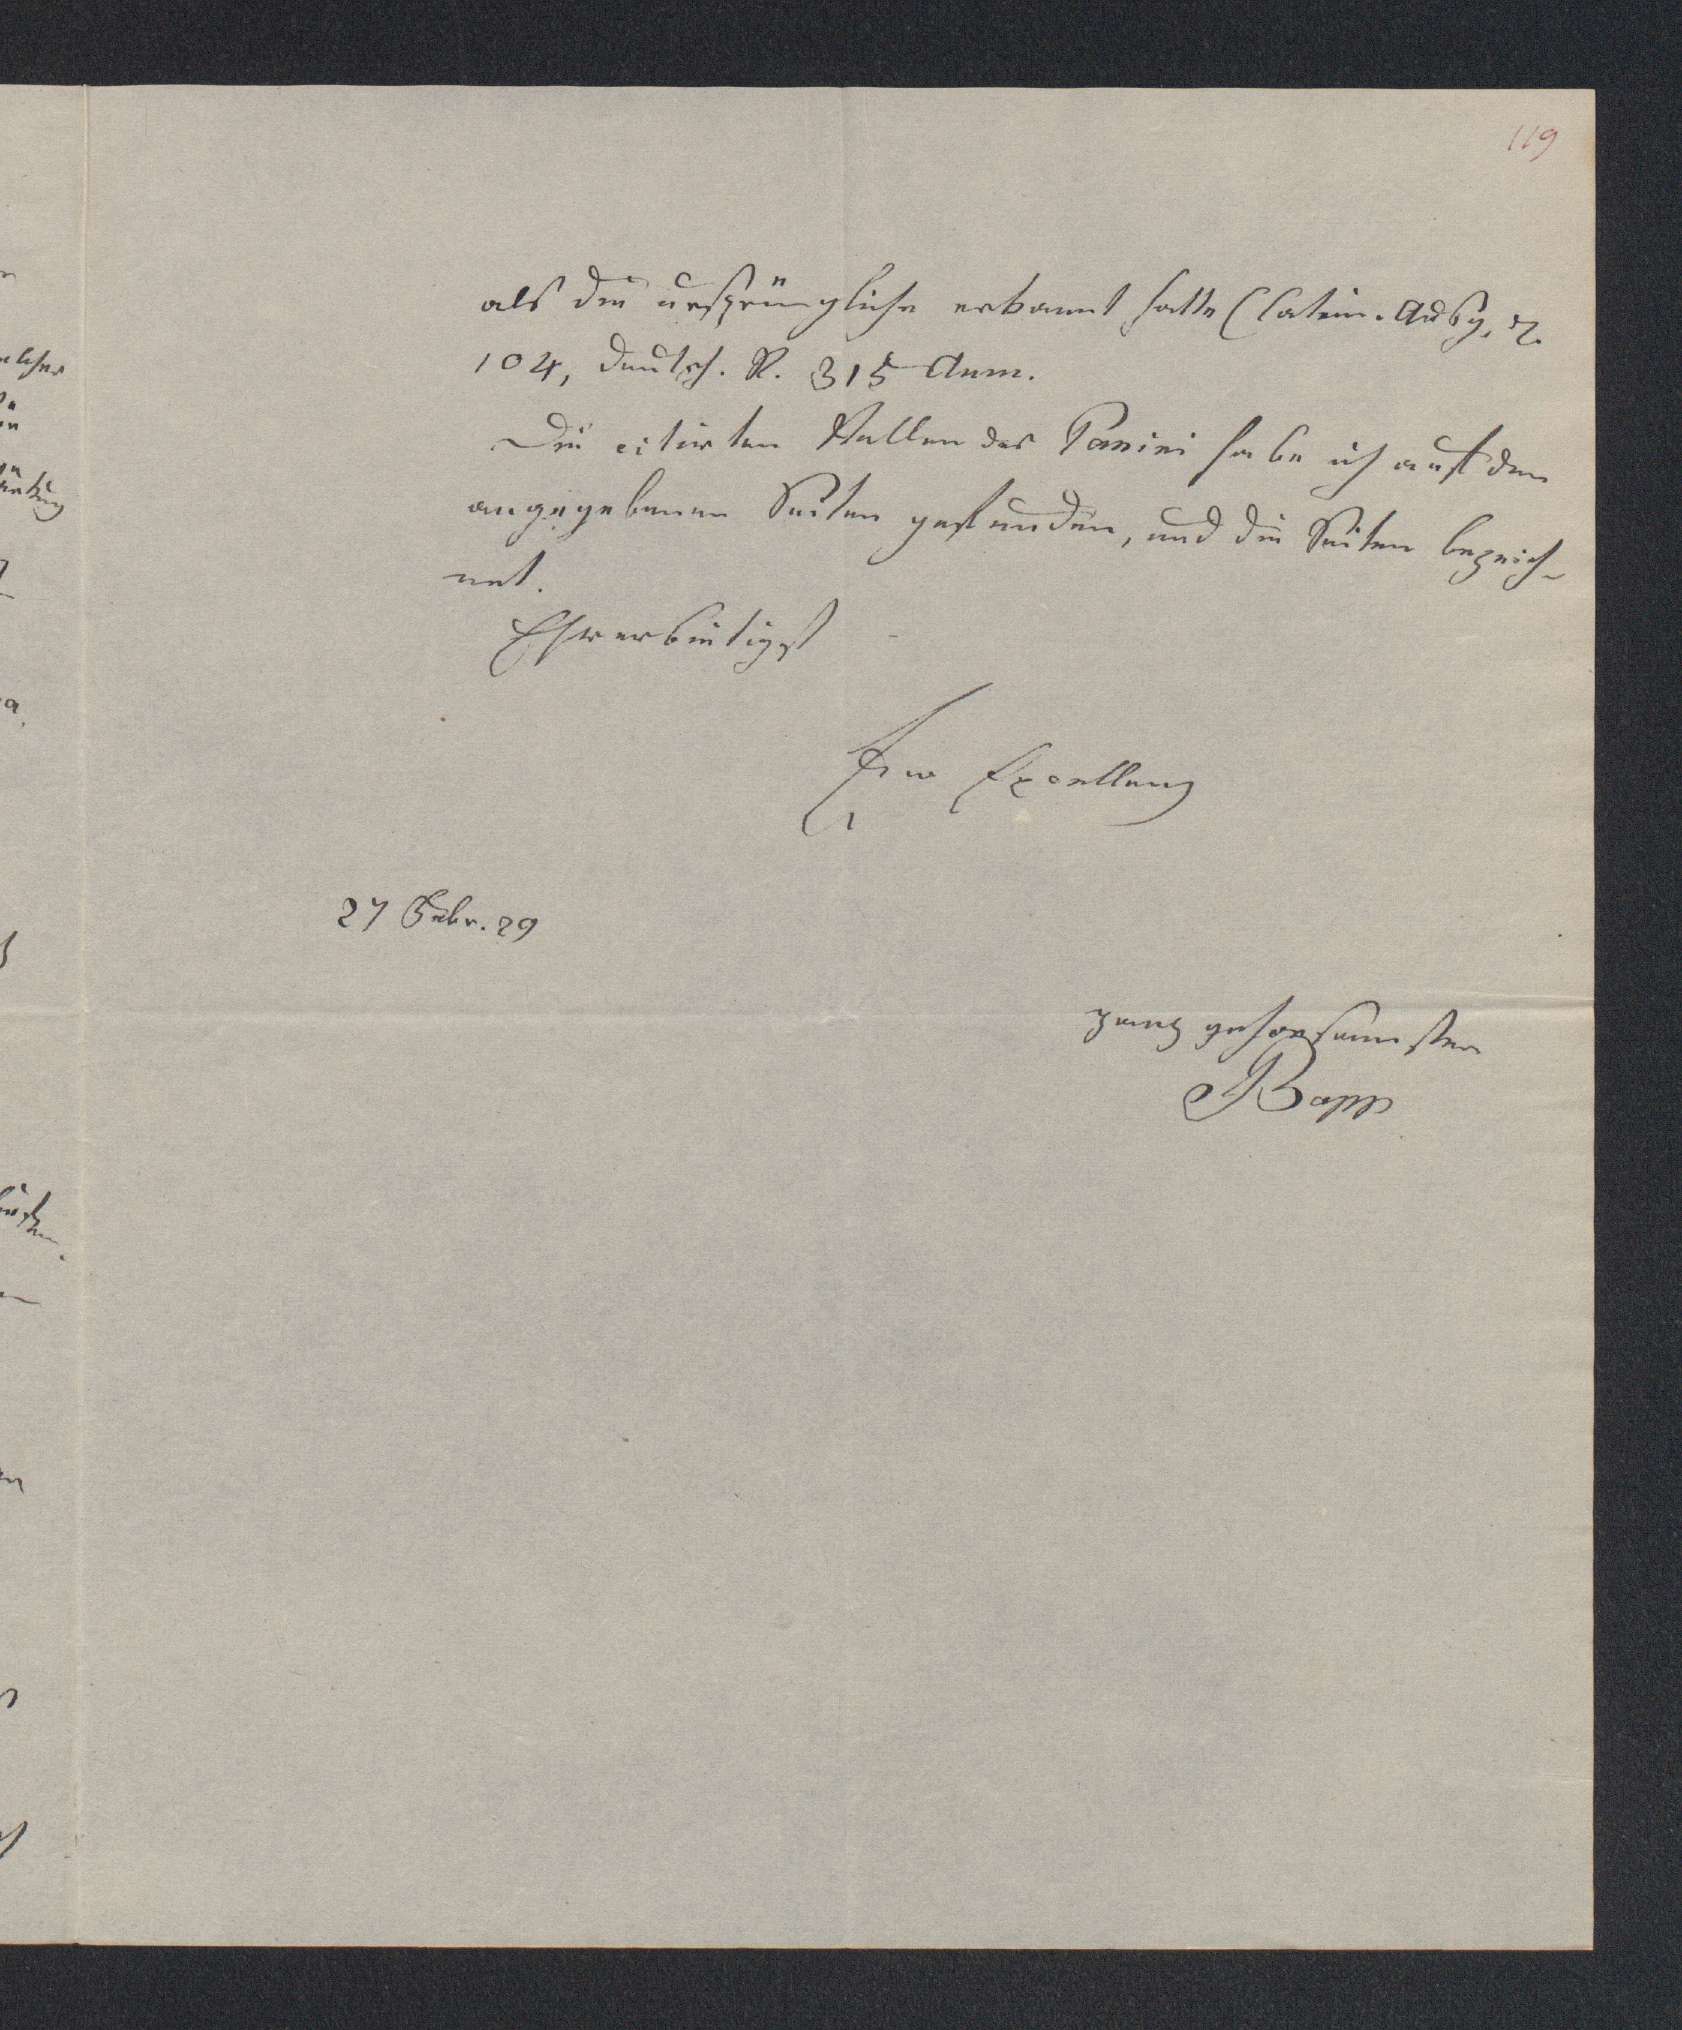 119
als die ursprüngliche erkannt hatte (latein. Ausg. r.
104, deutsch. R. 315 Anm.
Die citirten Stellen des Panini habe ich auf den
angegebenen Seiten gefunden, und die Seiten bezeich-
net.
Ehrerbietigst
Ew Excellenz
27 Febr. 29
ganz gehorsamster
Bopp